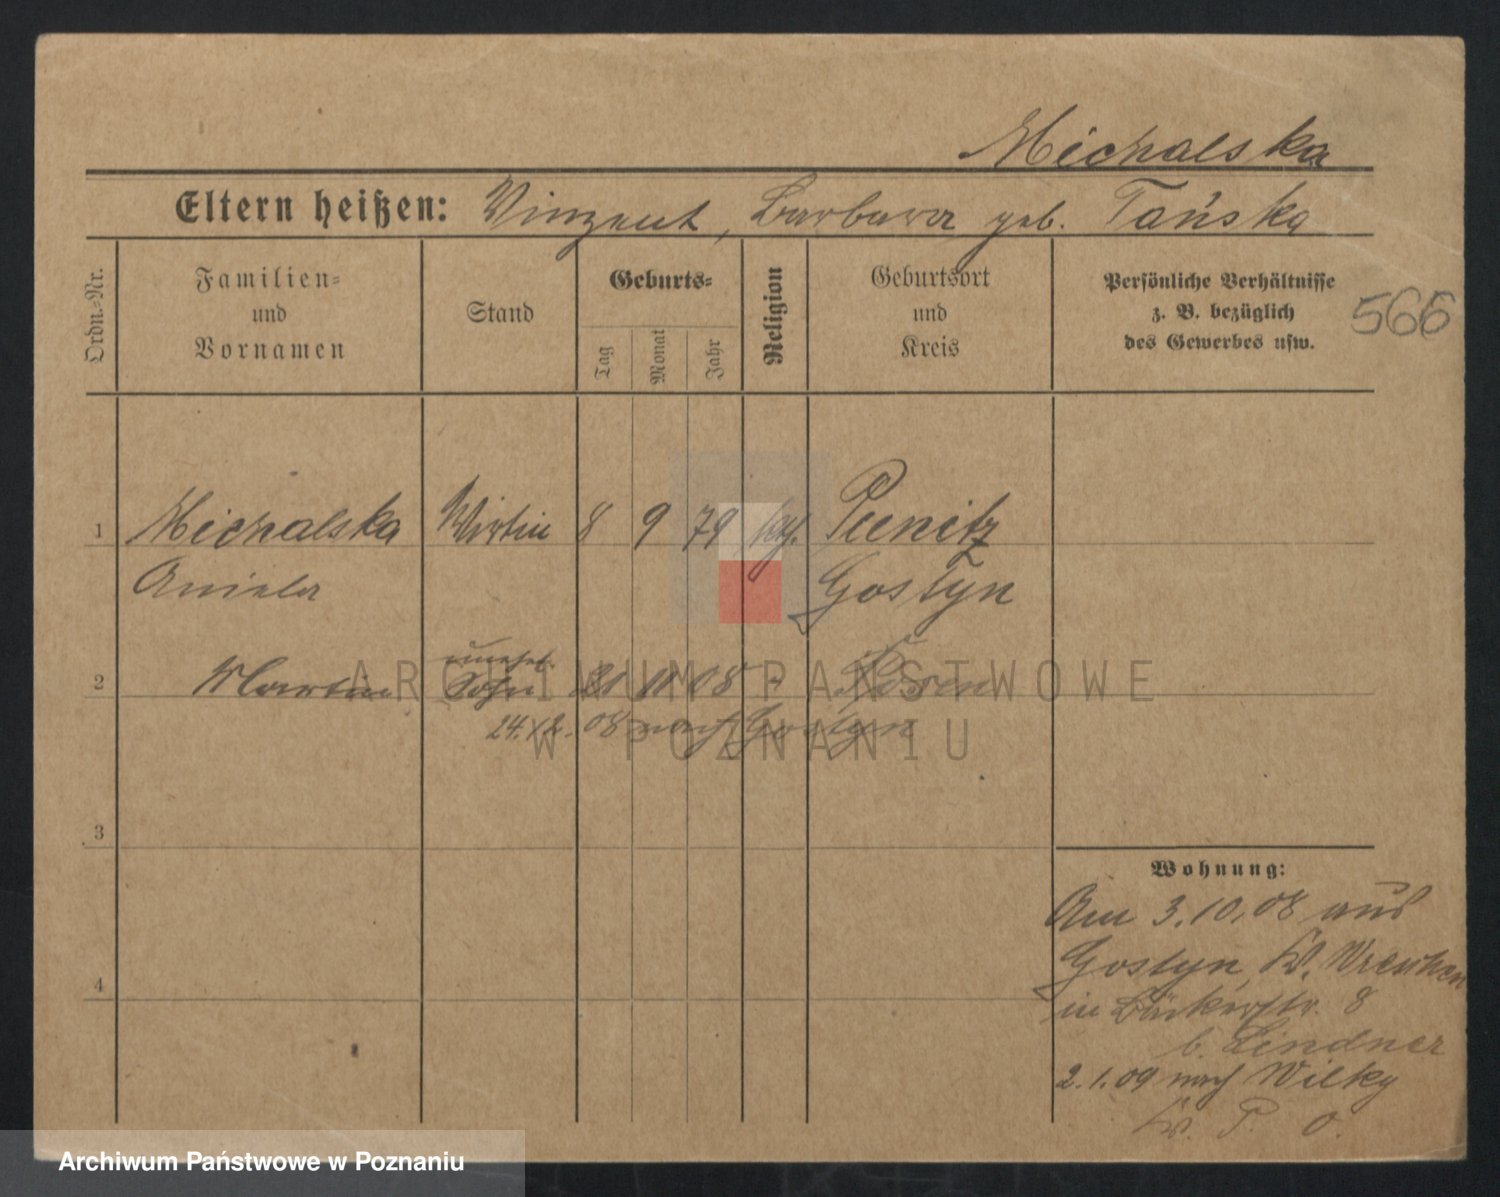 Michalska
Eltern heißen: Vinzent, Barbara geb. Tańska
Ordn.-Nr.
Familien-
und
Vornamen
Stand
Geburts-
Tag
Monat
Jahr
Religion
Geburtsort
und
Kreis
Persönliche Verhältnisse
z. B. bezüglich
des Gewerbes usw.
566
1 Michalska Wirtin 8 9 79 kth. Peenitz
Aniela Gostyn
unehel.
2 Martin Sohn 21 11 08 - Posen
24.12.08 nach Gostyn
3
4
Wohnung:
Am 3.10.08 aus
Gostyn, K.
in Bäckerstr. 8
b. Lindner
2.1.09 nach Wilky
K. P. O.
ARCHIWUM PAŃSTWOWE
W POZNANIU
Archiwum Państwowe w Poznaniu